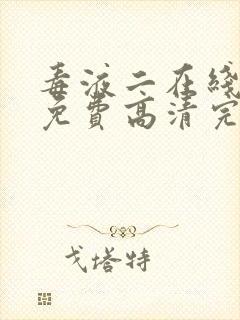 毒液二在线
免费高清完
戈塔特